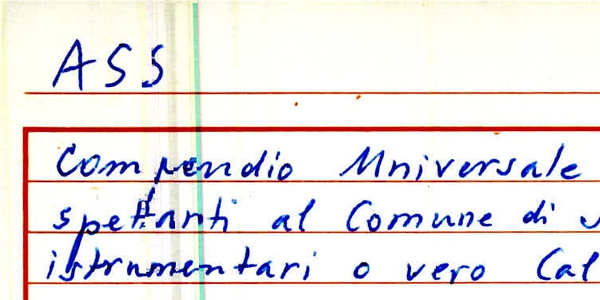 ASS
Compendio Universale
spettanti al Comune di
istrumentari o vero Cal